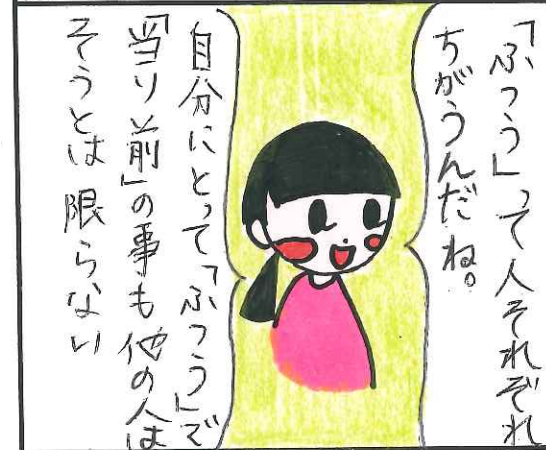 「ふつう」って人それぞれ
ちがうんだね。
自分にとって「ふつう」で
「当り前」の事も他の人は
そうとは限らない